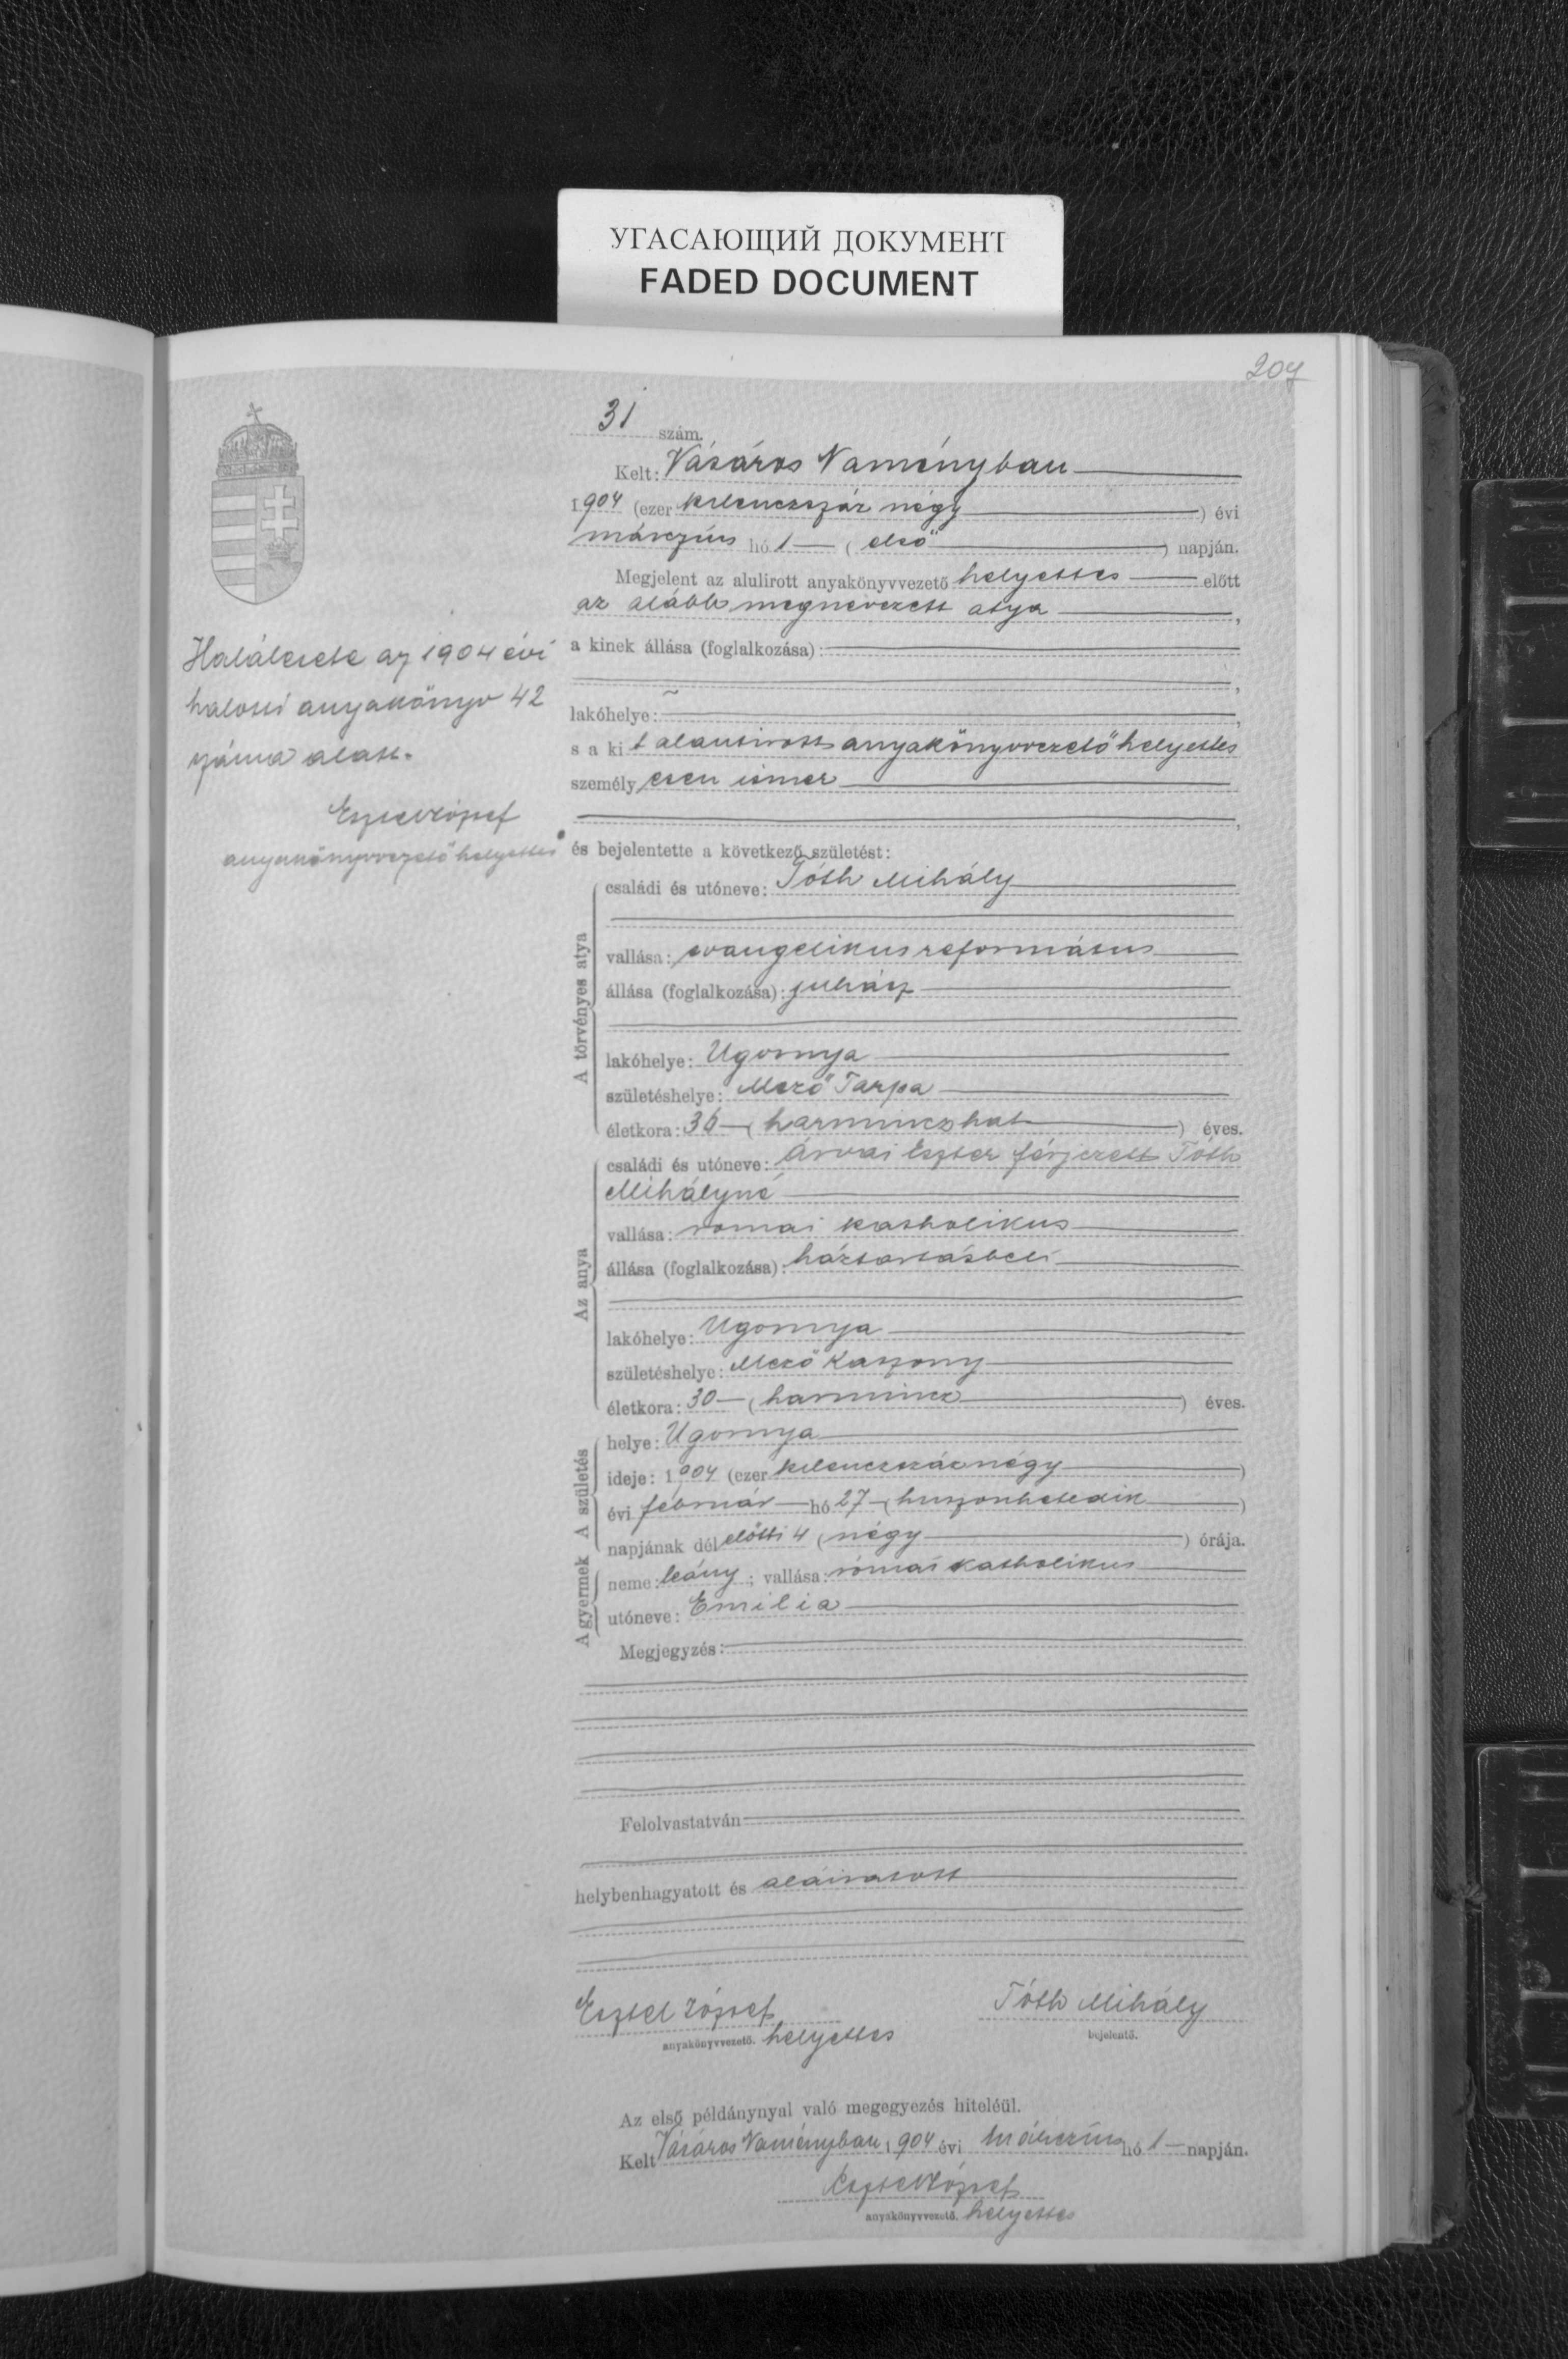 УГАСАЮЩИЙ ДОКУМЕНТ
FADED DOCUMENT
207
31 szám.
Kelt: Vásáros Naményban
1904 (ezer kilenczszáz négy) évi
márczius hó 1 (első) napján.
Megjelent az alulirott anyakönyvvezető helyettes előtt
az alább megnevezett atya,
a kinek állása (foglalkozása):
lakóhelye:
s a kit alantirott anyakönyvvezető helyettes
személyesen ismer
és bejelentette a következő születést:
A törvényes atya
családi és utóneve: Tóth Mihály
vallása: evangelikus református
állása (foglalkozása): juhász
lakóhelye: Ugornya
születéshelye: Mező Tarpa
életkora: 36 (harminczhat) éves.
Az anya
családi és utóneve: Árvai Eszter férjezett Tóth
Mihályné
vallása: romai katholikus
állása (foglalkozása): háztartásbeli
lakóhelye: Ugornya
születéshelye: Mező Kaszony
életkora: 30 (harmincz) éves.
A születés
helye: Ugornya
ideje: 1904 (ezer kilenczszáznégy)
évi február hó 27 (huszonhetedik)
napjának délelőtti 4 (négy) órája.
A gyermek
neme: leány; vallása: római katholikus
utóneve: Emilia
Megjegyzés:
Felolvastatván
helybenhagyatott és aláiratott
József
Tóth Mihály
anyakönyvvezető. helyettes
bejelentő.
Az első példánynyal való megegyezés hiteléül.
Kelt Vásáros Naményban 1904 évi Márczius hó 1 napján.
József
anyakönyvvezető. helyettes
Halálesete az 1904 évi
halotti anyakönyv 42
száma alatt.
József
anyakönyvvezető helyettes